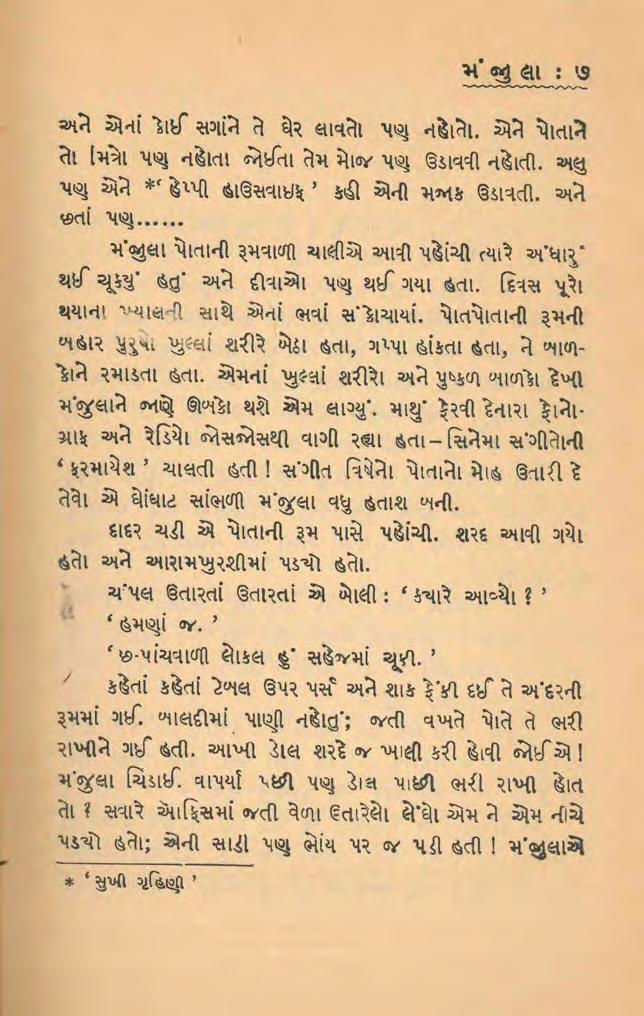 મંજુલા : ૭
અને એનાં કોઈ સગાંને તે ઘેર લાવતો પણ નહોતો. એને પોતાને
તો મિત્રો પણ નહોતા જોઈતા તેમ મોજ પણ ઉડાવવી નહોતી. અલુ
પણ એને *‘ હેપ્પી હાઉસવાઇફ ’ કહી એની મજાક ઉડાવતી. અને
છતાં પણ......
મંજુલા પોતાની રૂમવાળી ચાલીએ આવી પહોંચી ત્યારે અંધારું
થઈ ચૂકયું હતું અને દીવાઓ પણ થઈ ગયા હતા. દિવસ પૂરો
થયાના ખ્યાલની સાથે એનાં ભવાં સંકોચાયાં. પોતપોતાની રૂમની
બહાર પુરુષો ખુલ્લાં શરીરે બેઠા હતા, ગપ્પા હાંકતા હતા, ને બાળ-
કોને રમાડતા હતા. એમનાં ખુલ્લાં શરીરો અને પુષ્કળ બાળકો દેખી
મંજુલાને જાણે ઊબકો થશે એમ લાગ્યું. માથું ફેરવી દેનારા ફોનો-
ગ્રાફ અને રેડિયો જોસજોસથી વાગી રહ્યા હતા–સિનેમા સંગીતોની
‘ ફરમાયેશ ’ ચાલતી હતી ! સંગીત વિષેનો પોતાનો મોહ ઉતારી દે
તેવો એ ઘોંઘાટ સાંભળી મંજુલા વધુ હતાશ બની.
દાદર ચડી એ પોતાની રૂમ પાસે પહોંચી. શરદ આવી ગયો
હતો અને આરામખુરશીમાં પડ્યો હતો.
ચંપલ ઉતારતાં ઉતારતાં એ બોલી : ‘ ક્યારે આવ્યો ? ’
‘ હમણાં જ. ’
‘ છ-પાંચવાળી લોકલ હું સહેજમાં ચૂકી. ’
કહેતાં કહેતાં ટેબલ ઉપર પર્સ અને શાક ફેંકી દઈ તે અંદરની
રૂમમાં ગઈ. બાલદીમાં પાણી નહોતું; જતી વખતે પોતે તે ભરી
રાખીને ગઈ હતી. આખી ડોલ શરદે જ ખાલી કરી હોવી જોઈએ !
મંજુલા ચિડાઈ. વાપર્યા પછી પણ ડોલ પાછી ભરી રાખી હોત
તો ? સવારે ઑફિસમાં જતી વેળા ઉતારેલો લેંઘો એમ ને એમ નીચે
પડ્યો હતો; એની સાડી પણ ભોંય પર જ પડી હતી ! મંજુલાએ
* ‘ સુખી ગૃહિણી ’